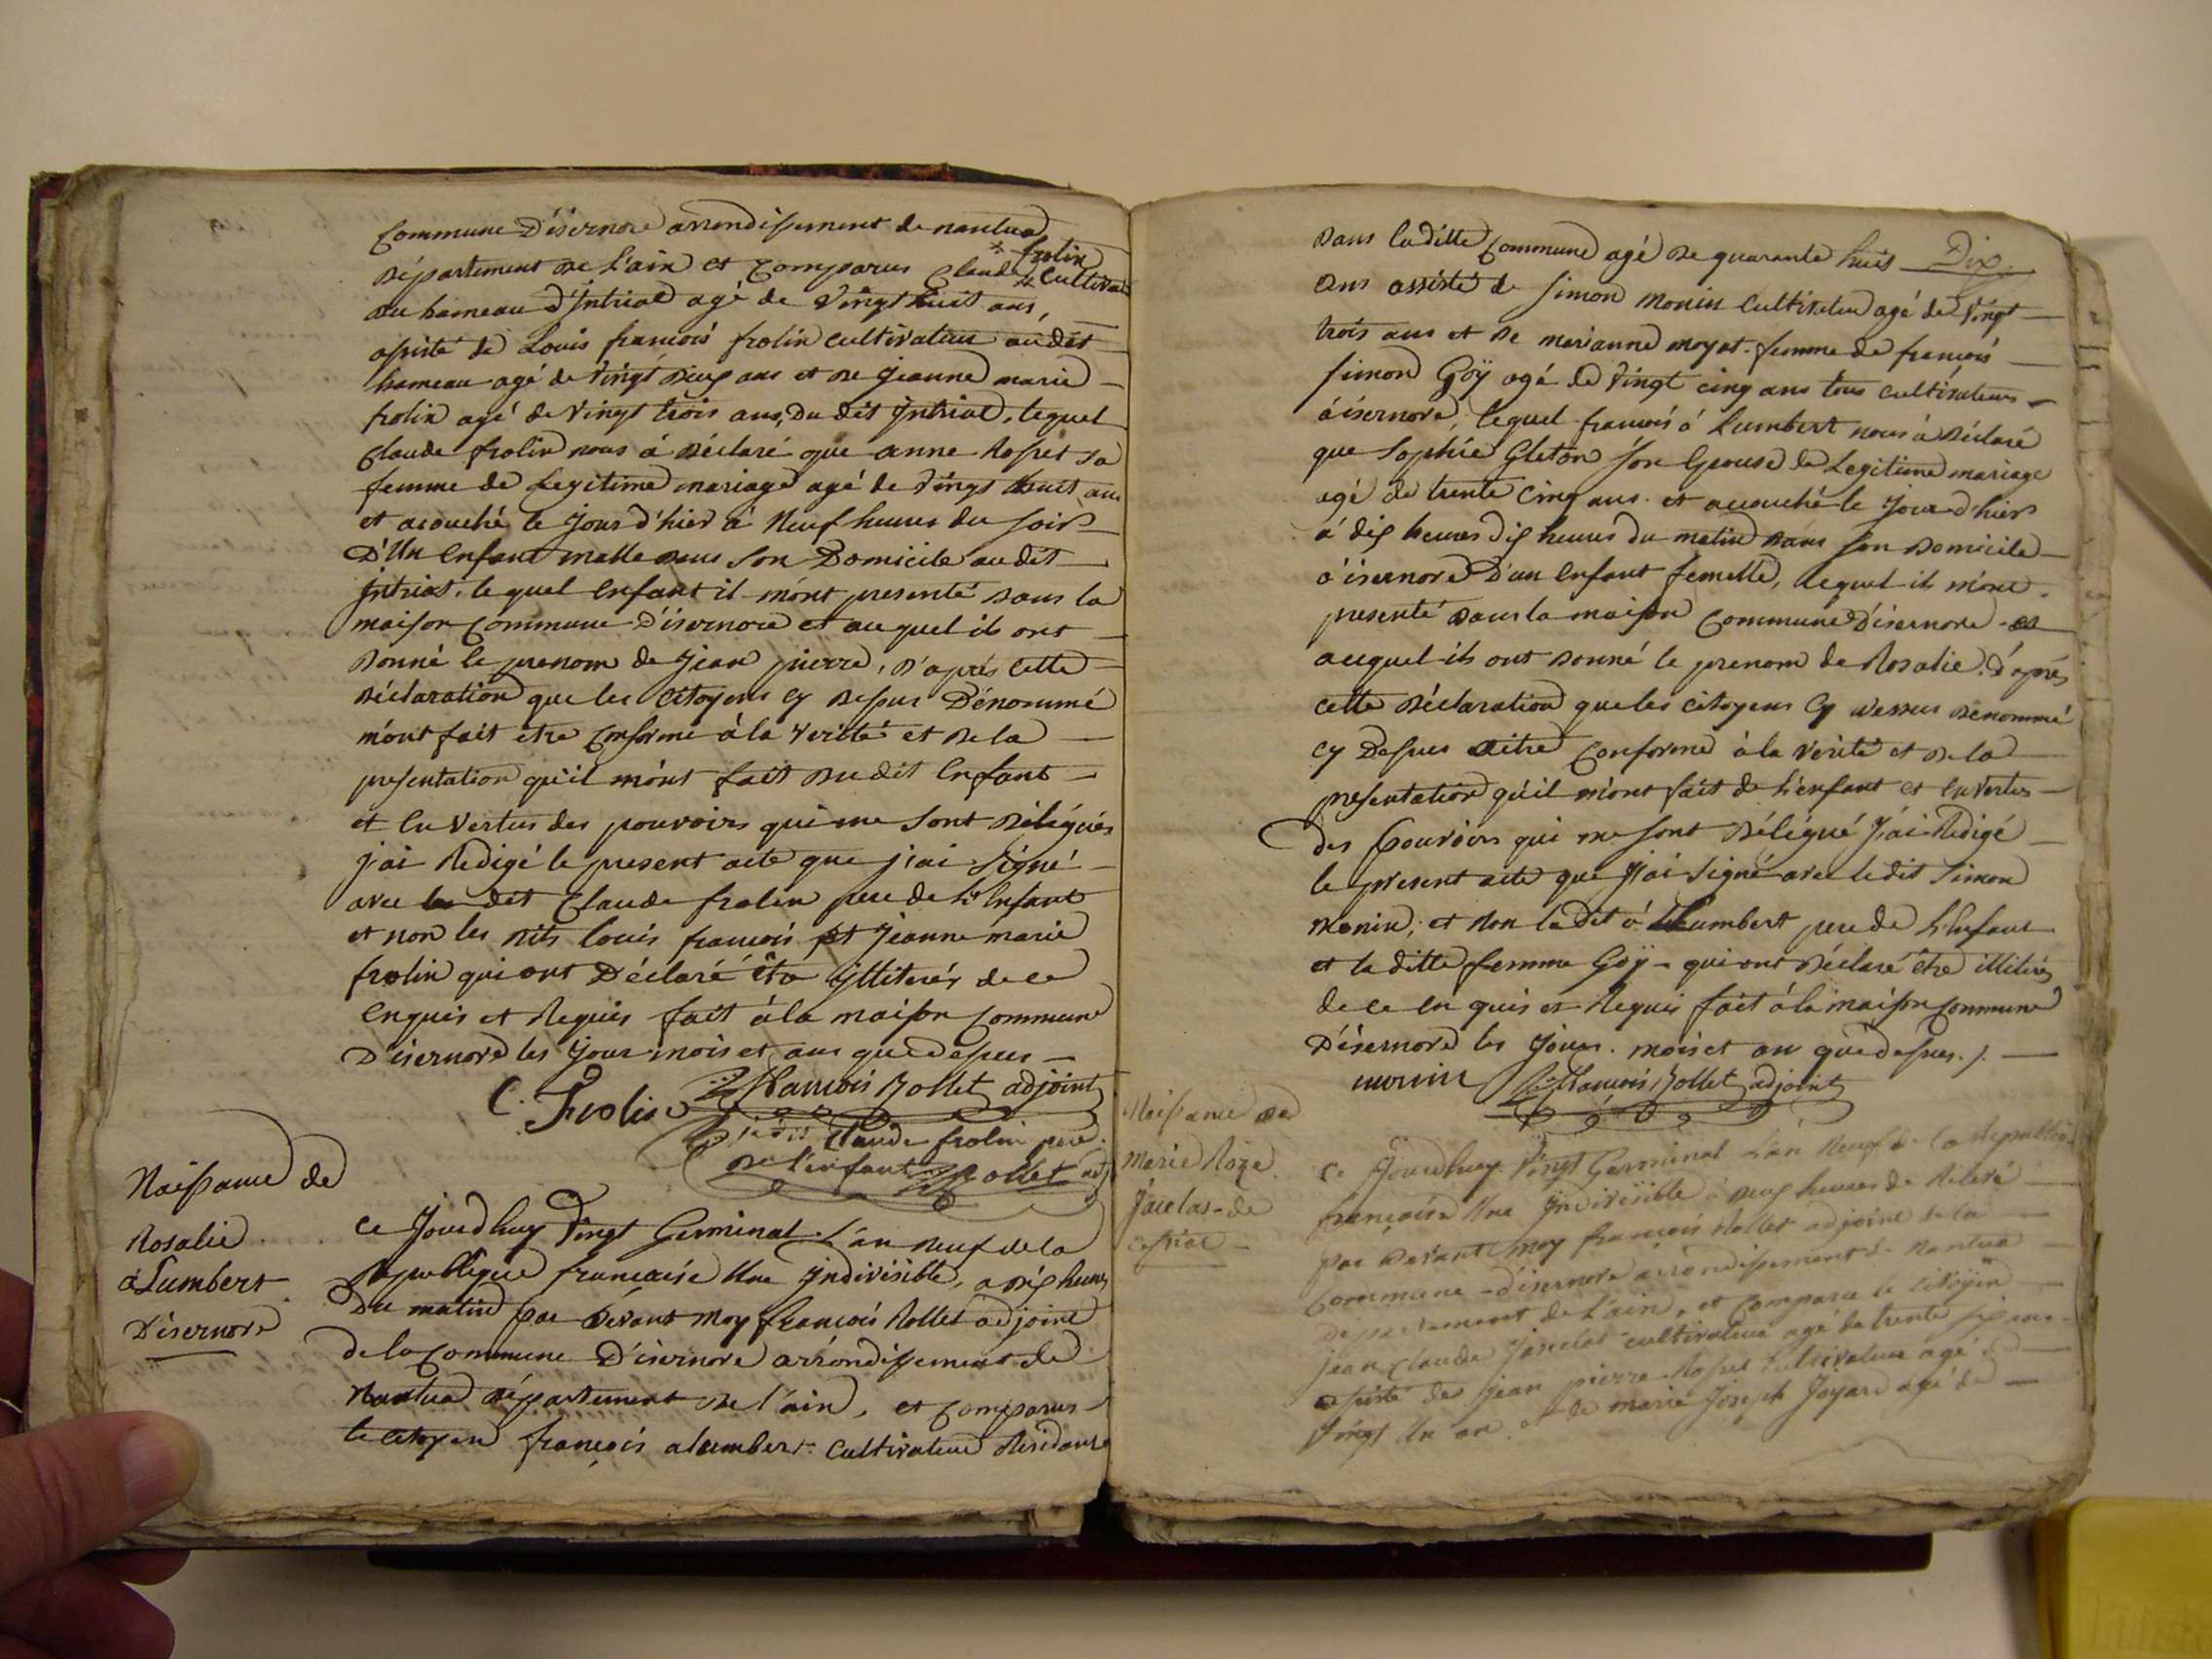 Commune D'isernore arrondissement de nantua
Département de l'ain et Comparus Claude * frolin
* Cultivat
du hameau d'Intriat agé de vingt huit ans,
assisté de Louis francois frolin cultivateur au dit
hameau agé de vingt deux ans et de jeanne marie
frolin agé de vingt trois ans, du dit Intriat. lequel
Claude frolin nous à déclaré que anne Rosset sa
femme de Legitime mariage agé de vingt huit ans
et acouché le jour d'hier à Neuf heures du soir
D'Un Enfant malle dans son Domicile au dit
Intriat. le quel Enfant il m'ont presenté dans la
maison Commune D'isernore et au quel ils ont
donné le prenom de jean pierre, d'après cette
déclaration que les Citoyens cy dessus Dénommé
m'ont fait etre Conforme à la verité et de la
presentation qu'il m'ont fait du dit Enfant
et En Vertus des pouvoirs qui me sont délégués
j'ai Redigé le present acte que j'ai signé
avec le dit Claude frolin pere de l'Enfant
et non les dits louis francois et jeanne marie
frolin qui ont Déclaré être illiterés de ce
Enquis et Requis fait à la maison Commune
D'isernore les jour mois et ans que dessus
C. Frolin francois Rollet adjoint
le dit Claude frolin pere
de l'enfant Rollet adj
Naissance de
Rosalie
à Lumbert
D'isernore
Ce Jourdhuy Vingt Germinal L'an neuf de la
Republique francaise Une Indivisible, a dix heures
Du matin par devant moy francois Rollet adjoint
de la Commune D'isernore arrondissement de
Nantua département de l'ain, et Comparus
le citoyen francois alumbert cultivateur Residant
Dix
dans laditte Commune agé de quarante huit
ans assisté de simon monin cultivateur agé de vingt
trois ans et de marianne moyat femme de francois
simon Goÿ agé de vingt cinq ans tous cultivateurs
à isernore, lequel francois à Lumbert nous à déclaré
que Sophie Gleton son Epouse de Legitime mariage
agé de trente cinq ans et acouché le jour d'hier
à dix heures dix heures du matin dans son domicile
à isernore D'un Enfant femelle, lequel ils m'ont
presenté dans la maison Commune D'isernore et
auquel ils ont donné le prenom de Rosalie. d'après
cette déclaration que les citoyens cy dessus denommé
cy Dessus etre Conforme à la verité et de la
presentation qu'il m'ont fait de l'enfant et En Vertus
des Pouvoirs qui me sont délégué j'ai Redigé
le present acte que j'ai signé avec le dit Simon
monin, et non le dit à Lumbert pere de l'Enfant
et la ditte femme Goÿ qui ont déclaré être illiterés
de ce En quis et Requis fait à la maison Commune
D'isernore les jour. mois et an que dessus ./.
monin francois Rollet adjoint
Naissance de
Marie Roze
Jaclas de
Cessiat
Ce Jourdhuy Vingt Germinal L'an Neuf de la Republique
francaise Une Indivisible à deux heures de Relevé
par devant moy francois Rollet adjoint de la
Commune d'isernore arrondissement de Nantua
département de l'ain, et Comparu le citoyen
jean Claude Jaclat cultivateur agé de trente six ans
assisté de jean pierre Rosset cultivateur agé de
Vingt Un an et de marie Joseph Joyard agé de